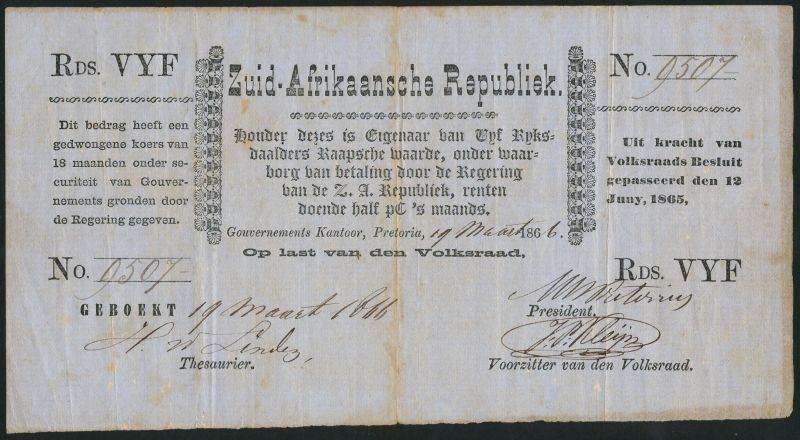 RDS. VYF
Dit bedrag heeft een
gedwongene koers van
18 maanden onder se-
curiteit van Gouver-
nements gronden door
de Regering gegeven.
No. 9507
Zuid-Afrikaansche Republiek.
Houder dezes is Eigenaar van Vyf Ryks-
daalders Kaapsche waarde, onder waar-
borg van betaling door de Regering
van de Z. A. Republiek, renten
doende half pC 's maands.
Gouvernements Kantoor, Pretoria, 19 Maart 1866.
Op last van den Volksraad,
No. 9507
Uit kracht van
Volksraads Besluit
gepasseerd den 12
Juny, 1865,
RDS. VYF
GEBOEKT 19 Maart 1866
Thesaurier.
MWPretorius
President.
Voorzitter van den Volksraad.